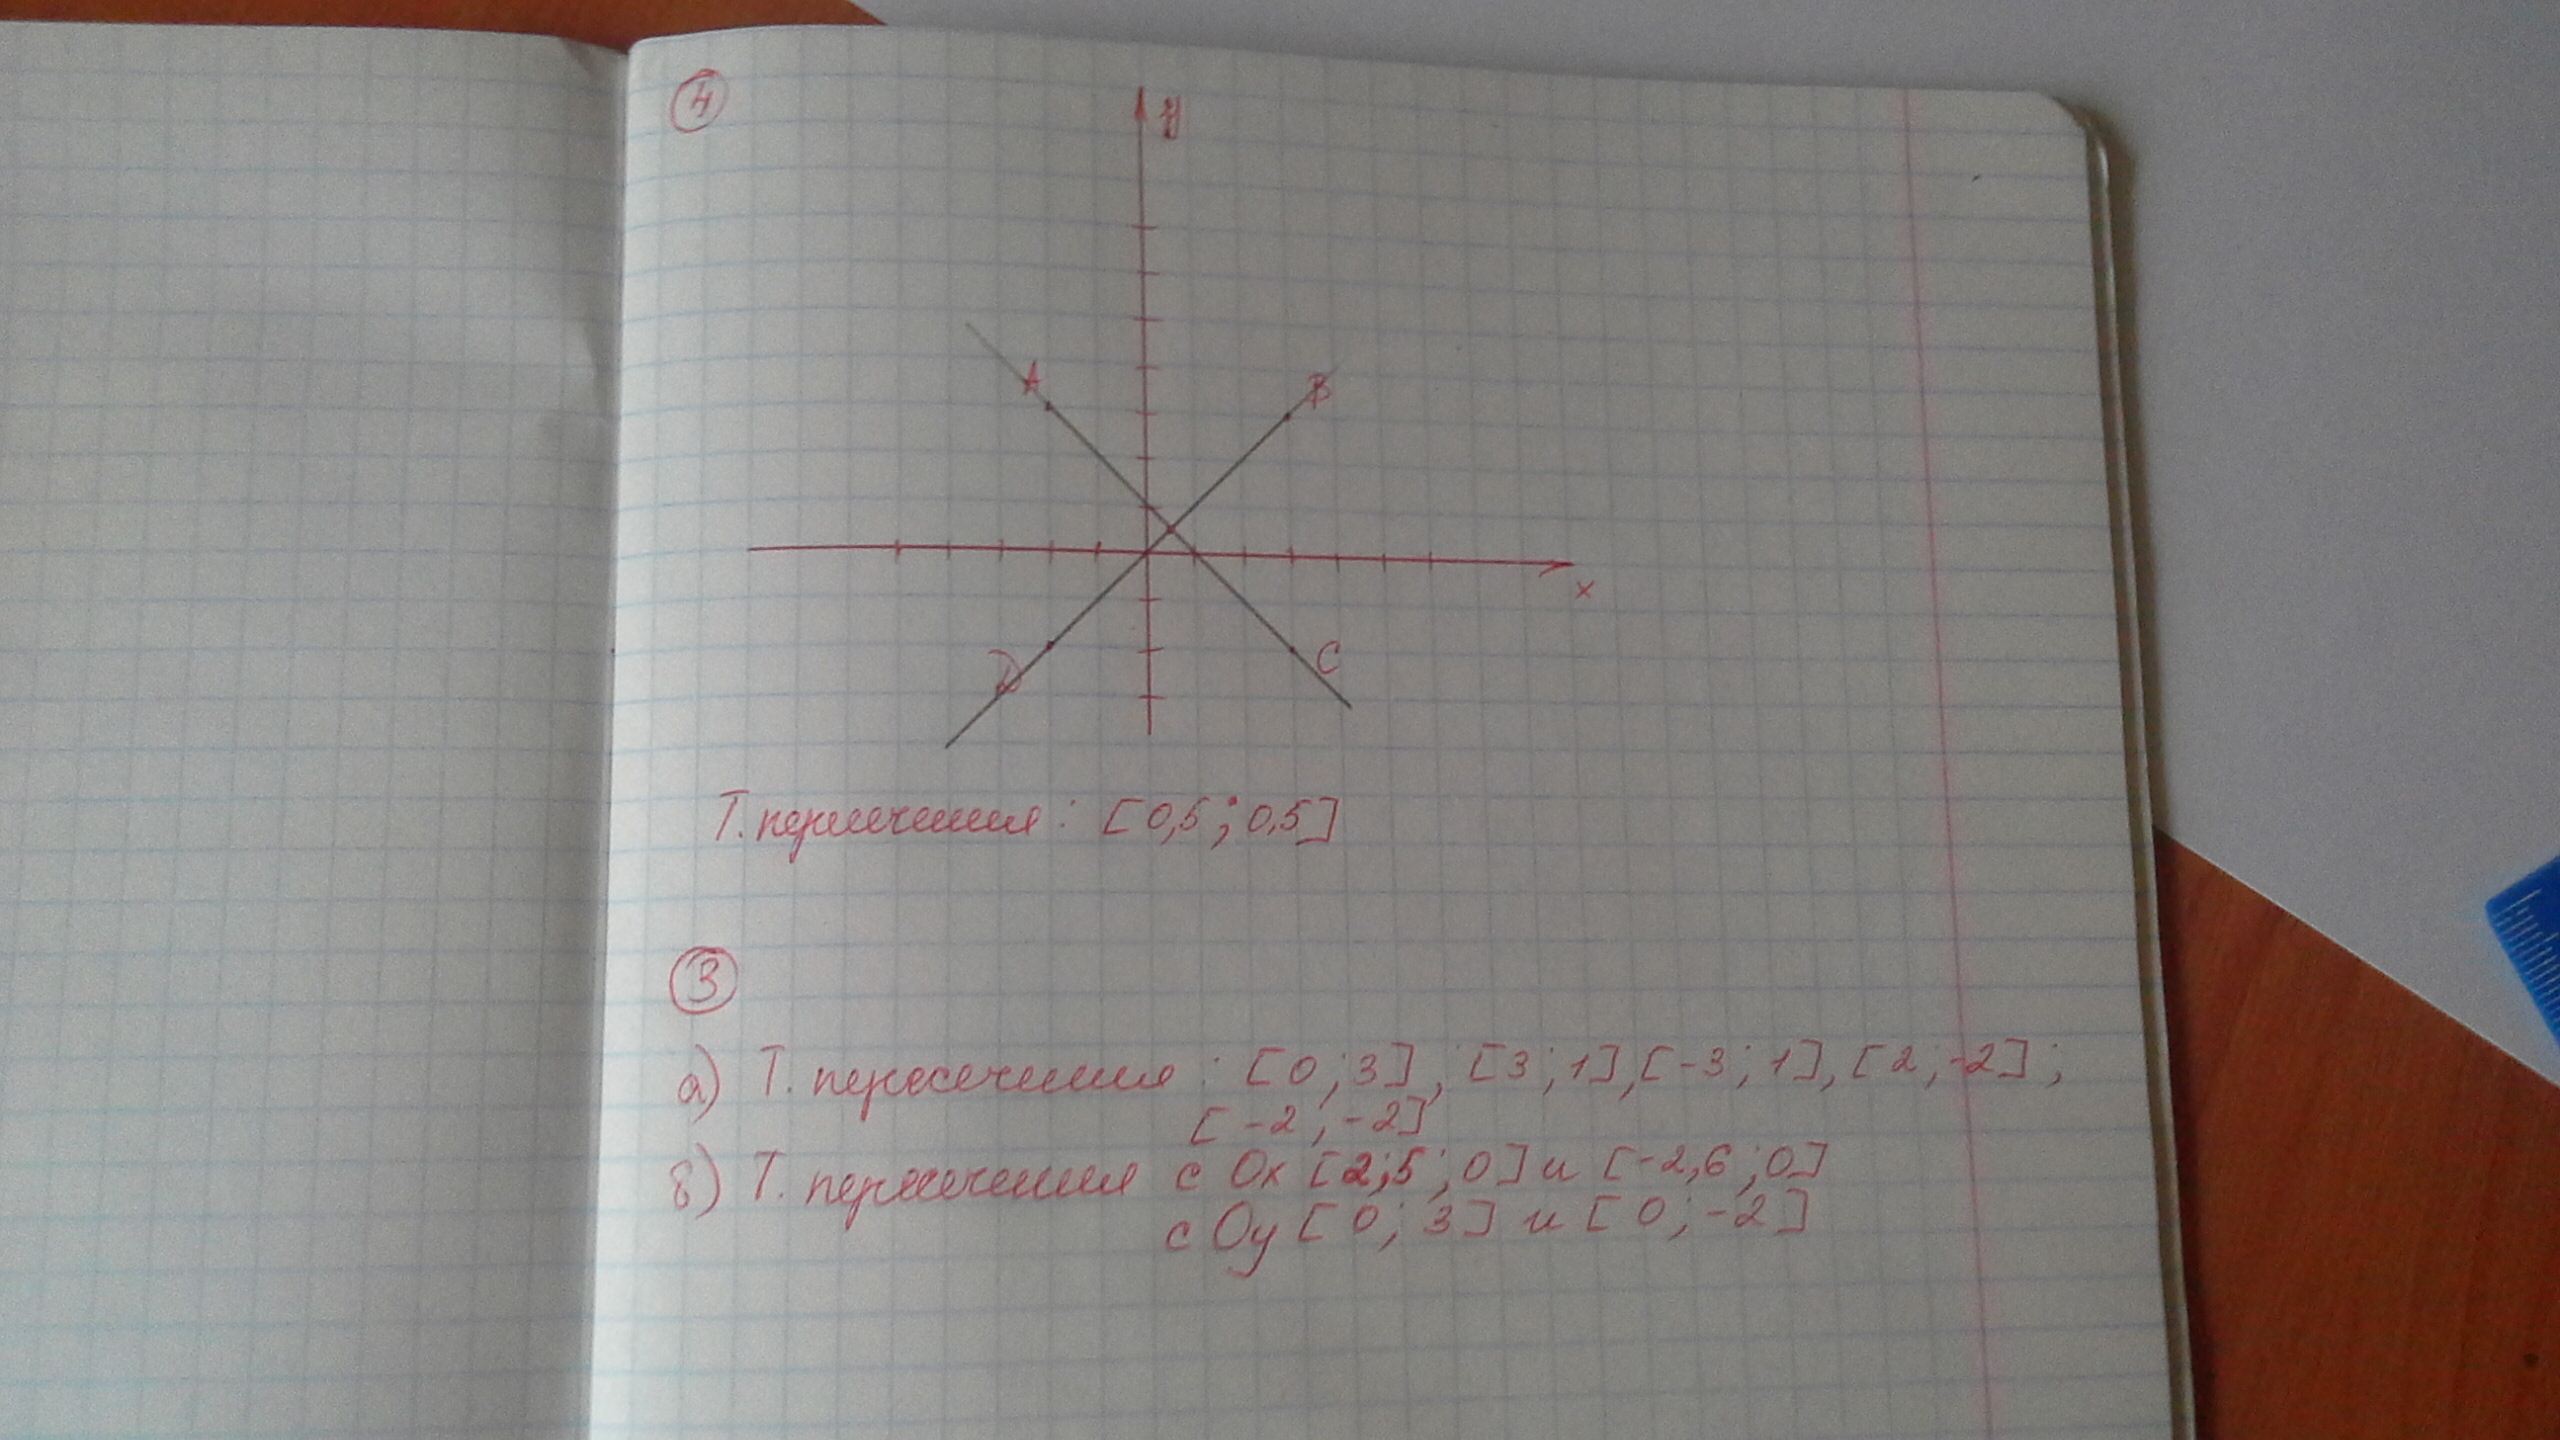 4
y
A
B
x
D
C
Т. пересечения: [0,5; 0,5]
3
а) Т. пересечения: [0; 3], [3; 1], [-3; 1], [2; -2];
[-2; -2]
б) Т. пересечения с Ox [2,5; 0] и [-2,6; 0]
с Oy [0; 3] и [0; -2]